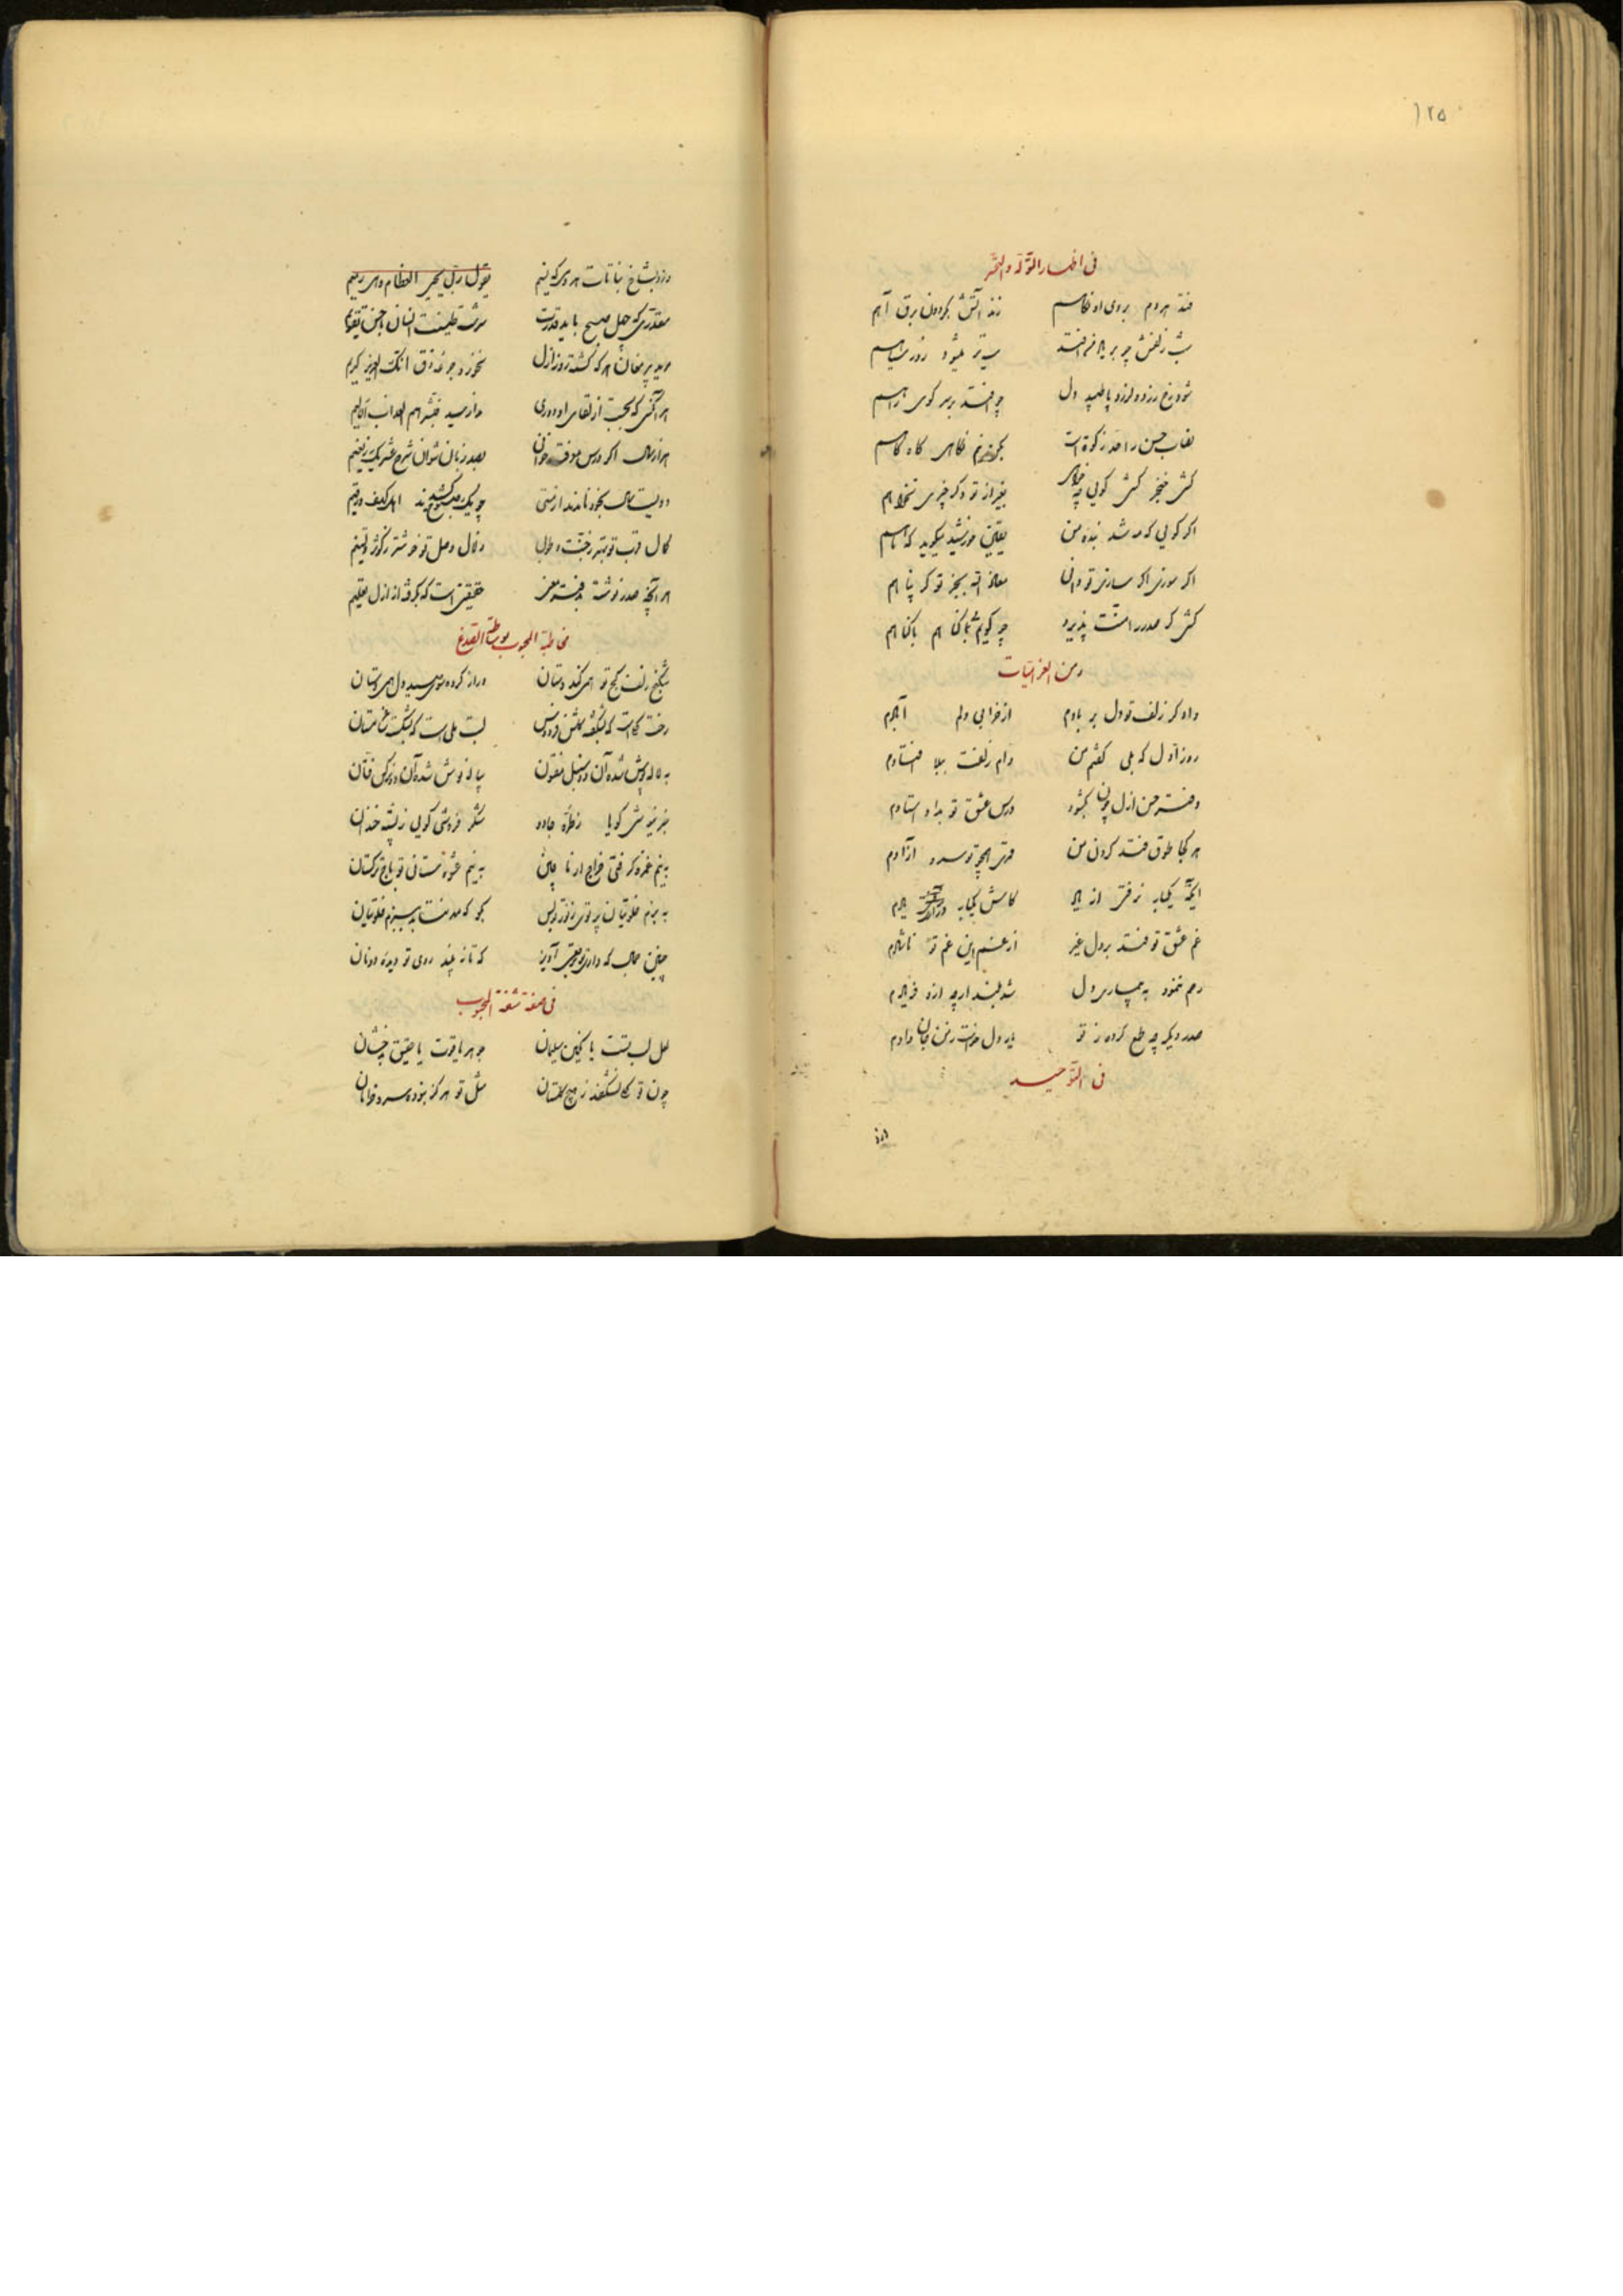 ۱۲۵
فی اظهار التوله والتحیر
فتد هر دم بروی او نگاهم زند آتش بگردون برق آهم
شب زلفش چو بر بالا فرو افتد سیه‌تر میشود روز سیاهم
شود رخ زرد و لرزد پا طپد دل چو افتد بر سر کوی تو راهم
نصاب حسن را صدر زکوة است نگاهی گاه گاهم
کشی خنجر کشی کوئی چه خواهی بغیر از تو دگر چیزی نخواهم
اگر گوئی که مه شد بنده من یقین خورشید میگوید گواهم
اگر سوزی اگر سازی تو دانی معاذ الله بجز تو کو پناهم
کشی گر صدر را منت پذیرد چه گویم بی‌گناهم با گناهم
ومن الغزلیات
داد گر زلف تو دل بر بادم از خرابی دلم آبادم
روز اول که بلی گفتم من دام زلفت ببلا افتادم
دفتر حسن ازل چون بگشود درس عشق تو بداد استادم
هر کجا طوق فتد گردن من قمری آنجا تو سرو آزادم
آنکه یکباره نرفتی از یاد کاش یکباره یادم
غم عشق تو فتد بر دل غیر از غم این غم تو ناشادم
رحم ننمود به بیچاره دل شد بلند ارچه ازو فریادم
صدر دیگر چه طمع کرده ز تو یار دل خواست ز من جان دادم
فی التوحید
وزد بشاخ نباتات هر دمی که نسیم یقول ربک یحیی العظام وهی رمیم
مقدری که چهل صبح با ید قدرت سرشت طینت انسان باحسن تقویم
مرید پیر مغان هر که گشته روز ازل نخورد جرعه ذق انک العزیز کریم
هر آنکس که بجست از لقای او دوری بدو رسید فبشرهم بعذاب الیم
هزار سال اگر درس معرفت خوانی بصد زبان نتوان شرح عشر یک ز نعیم
دویست سال بخود نامدند از مستی چو یک صبوح کشیدند اهل کهف و رقیم
کمال قرب تو بهتر ز جنت و طوبی زلال وصل تو خوشتر ز کوثر و تسنیم
هر آنچه صدر نوشته بدفتر معنی حقیقتی است که بگرفته از ازل تعلیم
مخاطبة المحبوب بوساطة الصدغ
شکنج زلف کج تو همی کند دستان دراز کرده بسوی سپید دل همی دستان
رخت گل است که بشکفته گلشن فردوس لبت مل است که بشکست
به لاله پوش شده آن دو سنبل مفتون پیاله نوش شده آن دو نرگس فتان
عبیر بیزش گویا ز طره جادو شکر فروشی گوئی ز پسته خندان
به نیم غمزه گرفتی خراج از تا چین به نیم عشوه ستانی تو باج ترکستان
به بزم خلوتیان پرتوی ز نور تو بس بگو که مه ننشیند به بزم خلوتیان
چنین جمال که داری تو آویز که تا نه بیند روی تو دیده دونان
فی صفة شفة المحبوب
لعل لب تست یا نگین سلیمان جوهر یاقوت یا عقیق بدخشان
چون تو گلی نشکفد ز هیچ گلستان مثل تو هرگز نبوده سرو خرامان